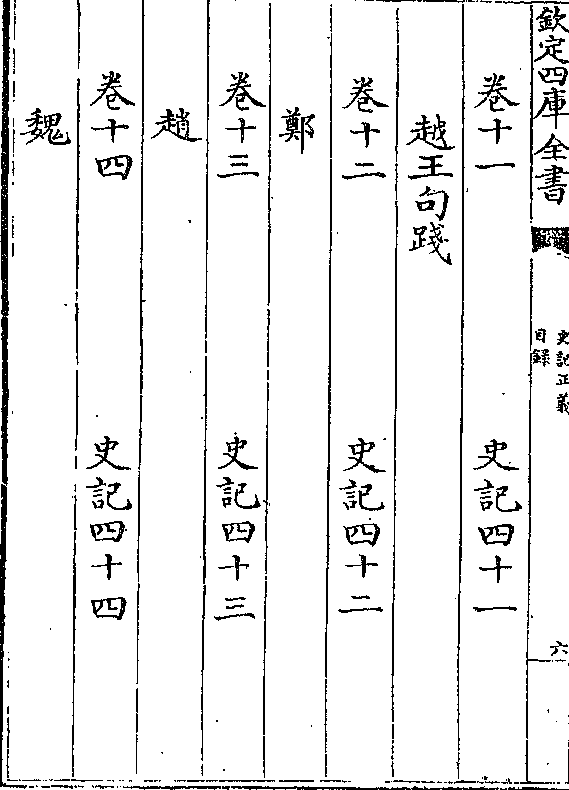 欽定四庫全書
史記正義
目錄
六
卷十一 史記四十一
越王句踐
卷十二 史記四十二
鄭
卷十三 史記四十三
趙
卷十四 史記四十四
魏